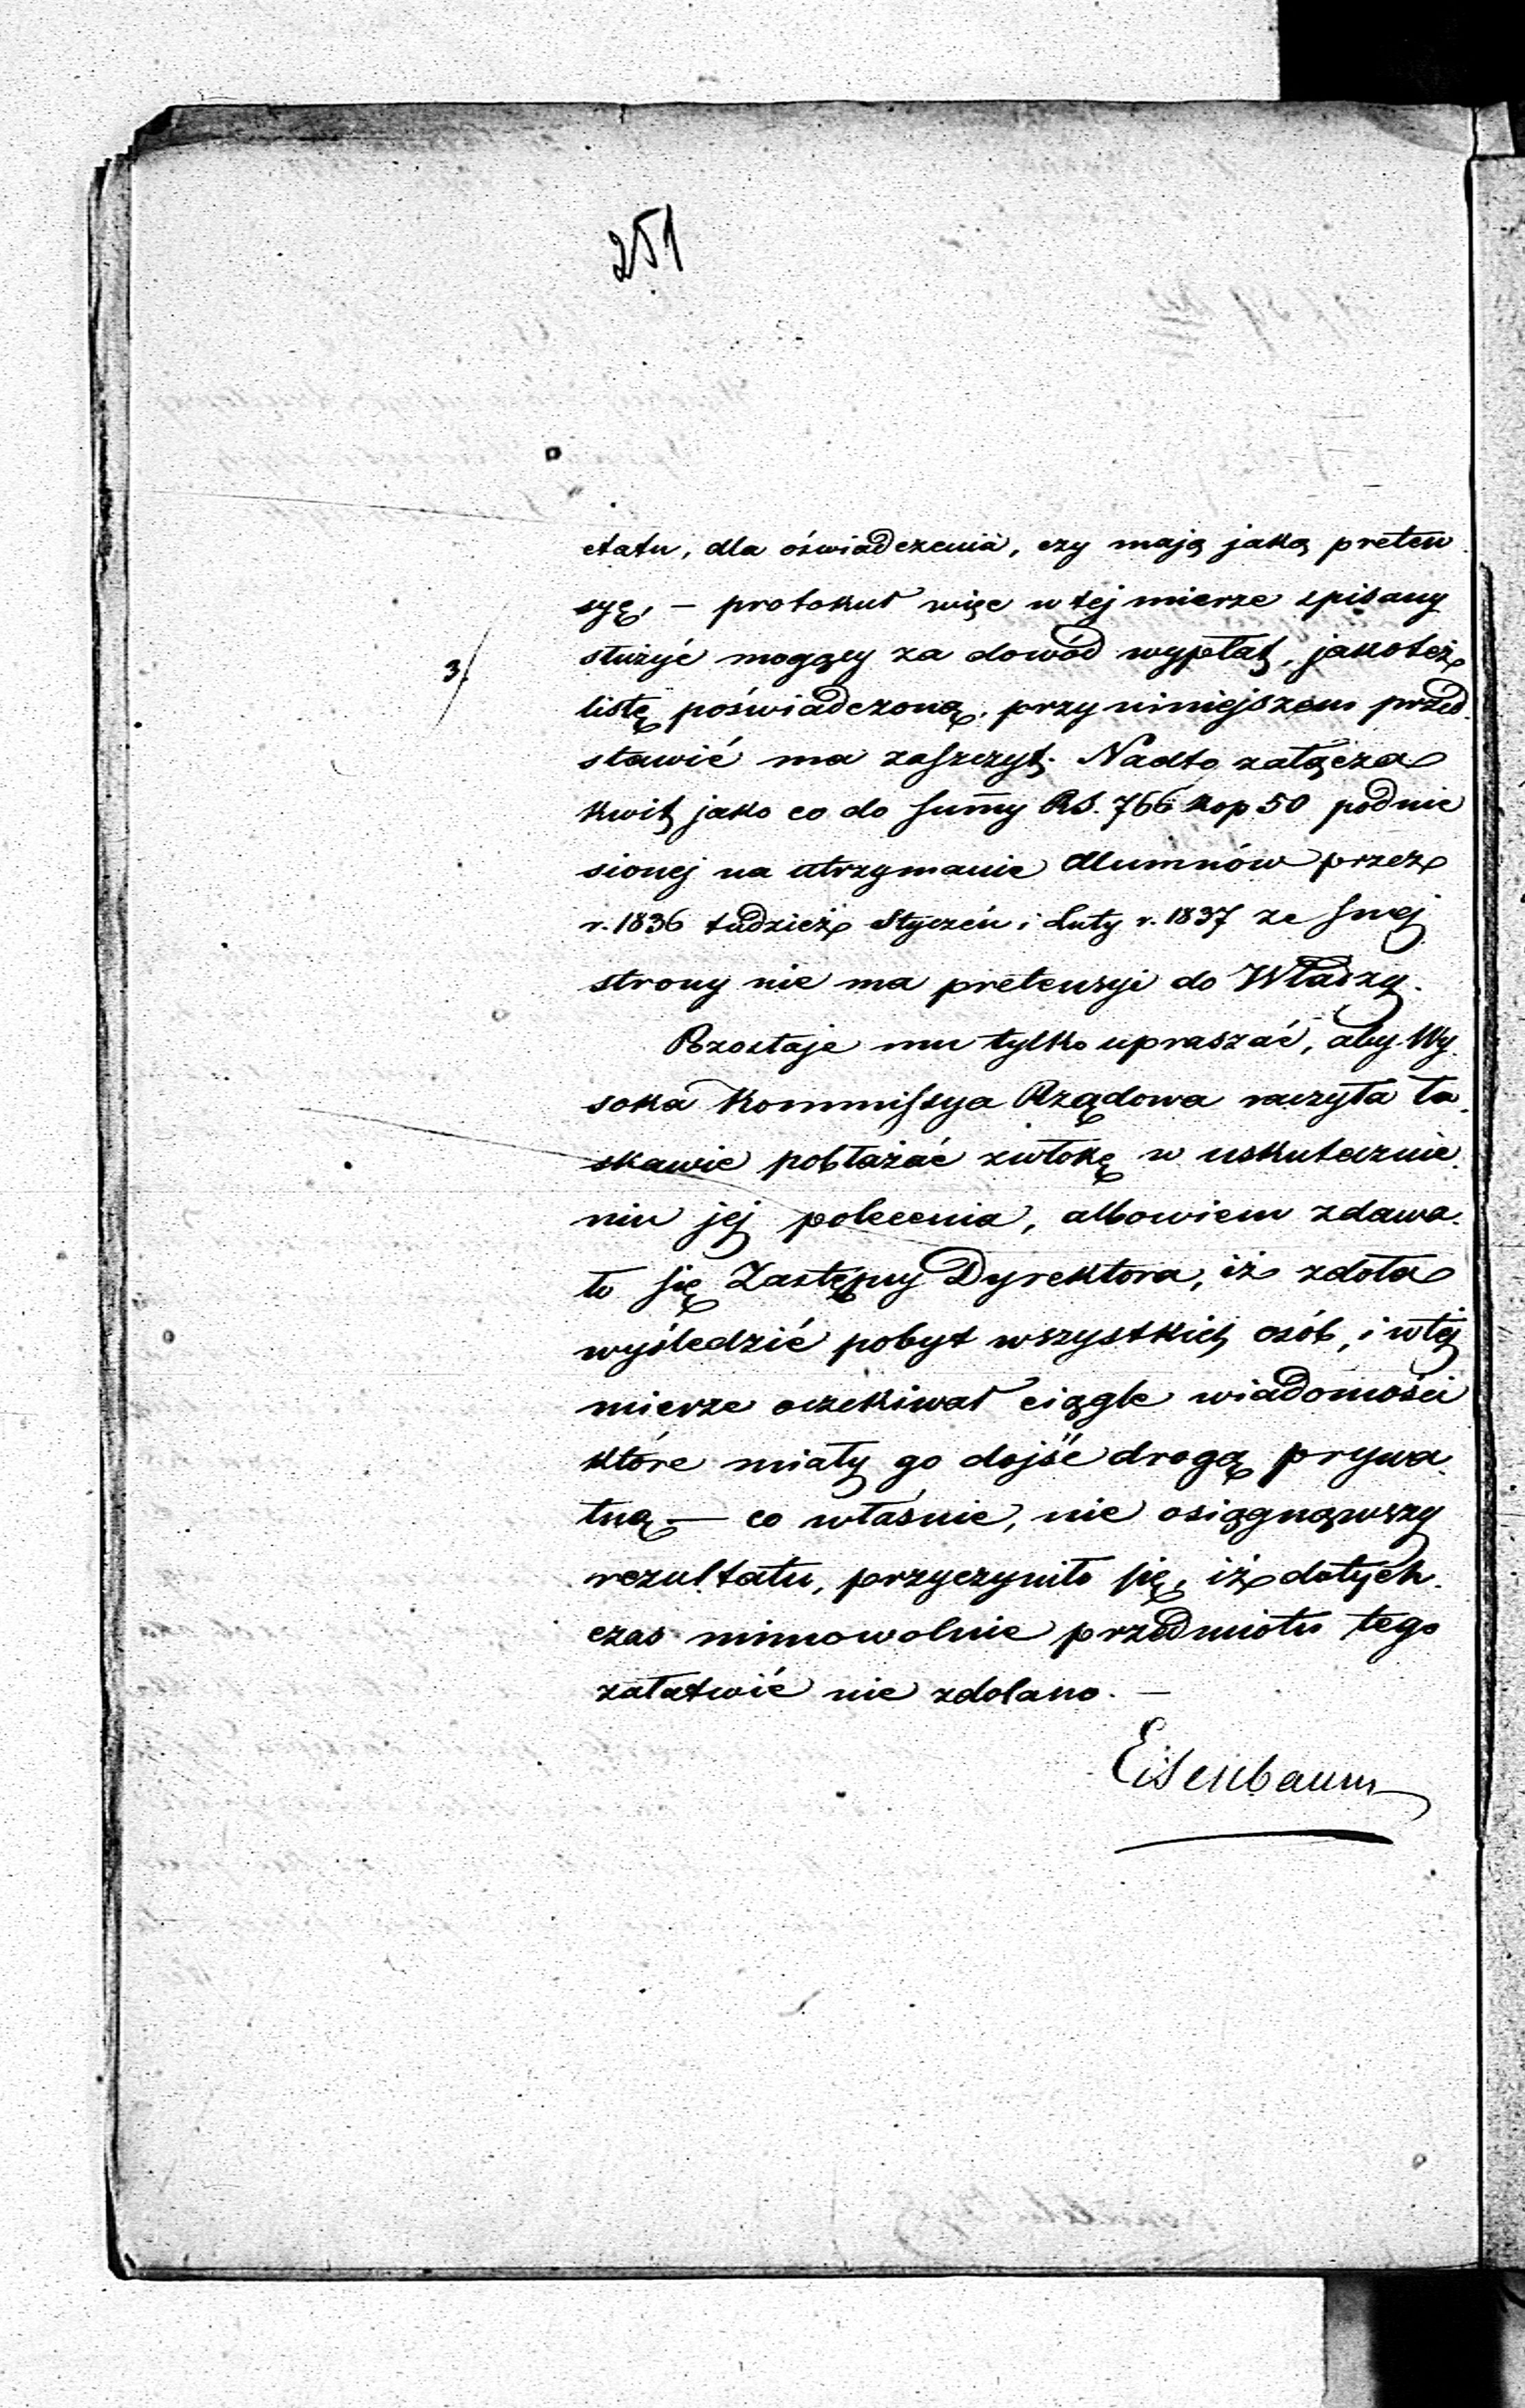 251
etatu, dla oświadczenia, czy mają jaką preten
syę, — protokuł więc w tej mierze spisany
3/
służyć mogący za dowód wypłat, jakoteż
listę poświadczoną, przy niniejszem przed
stawić ma zaszczyt. Nadto załącza
kwit jako co do summy RS. 766 kop 50 podnie
sionej na utrzymanie Alumnów przez
r. 1836 tudzież Styczeń i Luty r. 1837 ze swej
strony nie ma pretensyi do Władzy.
Pozostaje mu tylko upraszać, aby Wy
soka Kommissya Rządowa raczyła ła
skawie pobłażać zwłokę w uskutecznie
niu jej polecenia, albowiem zdawa
ło się Zastępcy Dyrektora, iż zdoła
wyśledzić pobyt wszystkich osób, i w tej
mierze oczekiwał ciągle wiadomości
które miały go dojść drogą prywa
tną — co właśnie, nie osiągnąwszy
rezultatu, przyczyniło się, iż dotych
czas mimowolnie przedmiotu tego
załatwić nie zdolano. —
Eisenbaum